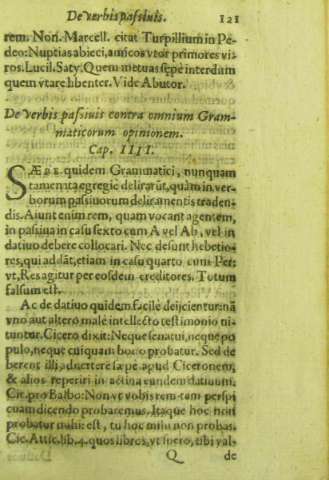 De verbis passiuis. 121
rem. Non. Marcell. citat Turpillium in Pe-
deo: Nuptias abieci, amicos vtor primores vi-
ros. Lucil. Saty. Quem metuas sępe interdum
quem vtare libenter. Vide Abutor.
De verbis passiuis contra omnium Gram-
maticorum opinionem.
Cap. IIII.
SÆPE quidem Grammatici, nunquam
tamen ita egregie delirarūt, quàm in ver-
borum passiuorum deliramentis traden-
dis. Aiunt enim rem, quam vocant agentem,
in passiua in casu sexto cum A vel Ab, vel in
datiuo debere collocari. Nec desunt hebetio-
res, qui addāt, etiam in casu quarto cum Per:
vt, Res agitur per eosdem creditores. Totum
falsum est.
Ac de datiuo quidem facile deijcientur: nā
vno aut altero malè intellecto testimonio ni-
tuntur. Cicero dixit: Neque senatui, neque po
pulo, neque cuiquam bono probatur. Sed de
berent illi aduertere sæpe apud Ciceronem,
& alios reperiri in actiua eundem datiuum.
Cic. pro Balbo: Non vt vobis rem tam perspi
cuam dicendo probaremus. Itaque hoc mihi
probatur nihil est, tu hoc mihi non probas.
Cic. Attic. lib. 4. quos libros, vt spero, tibi val-
Q de